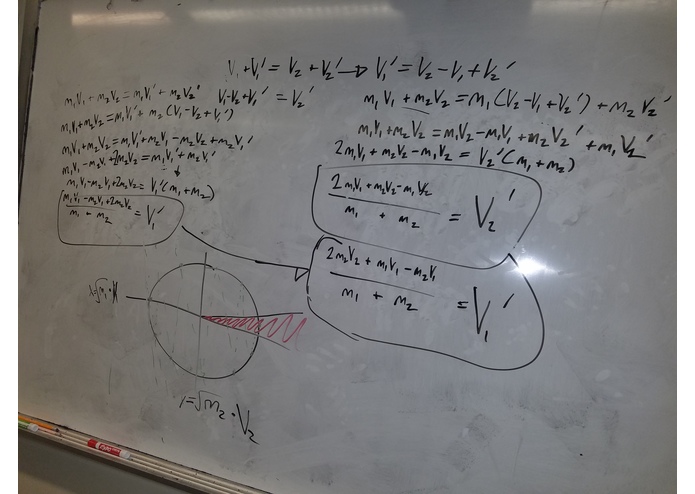 V₁ + V₁' = V₂ + V₂' → V₁' = V₂ - V₁ + V₂'
m₁V₁ + m₂V₂ = m₁V₁' + m₂V₂' V₁ - V₂ + V₁' = V₂'
m₁V₁ + m₂V₂ = m₁V₁' + m₂(V₁ - V₂ + V₁')
m₁V₁ + m₂V₂ = m₁V₁' + m₂V₁ - m₂V₂ + m₂V₁'
m₁V₁ - m₂V₁ + 2m₂V₂ = m₁V₁' + m₂V₁'
m₁V₁ - m₂V₁ + 2m₂V₂ = V₁'(m₁ + m₂)
m₁V₁ - m₂V₁ + 2m₂V₂
m₁ + m₂
= V₁'
m₁V₁ + m₂V₂ = m₁(V₂ - V₁ + V₂') + m₂V₂'
m₁V₁ + m₂V₂ = m₁V₂ - m₁V₁ + m₂V₂' + m₁V₂'
2m₁V₁ + m₂V₂ - m₁V₂ = V₂'(m₁ + m₂)
2m₁V₁ + m₂V₂ - m₁V₂
m₁ + m₂
= V₂'
2m₂V₂ + m₁V₁ - m₂V₁
m₁ + m₂
= V₁'
y = √m₂ · V₂